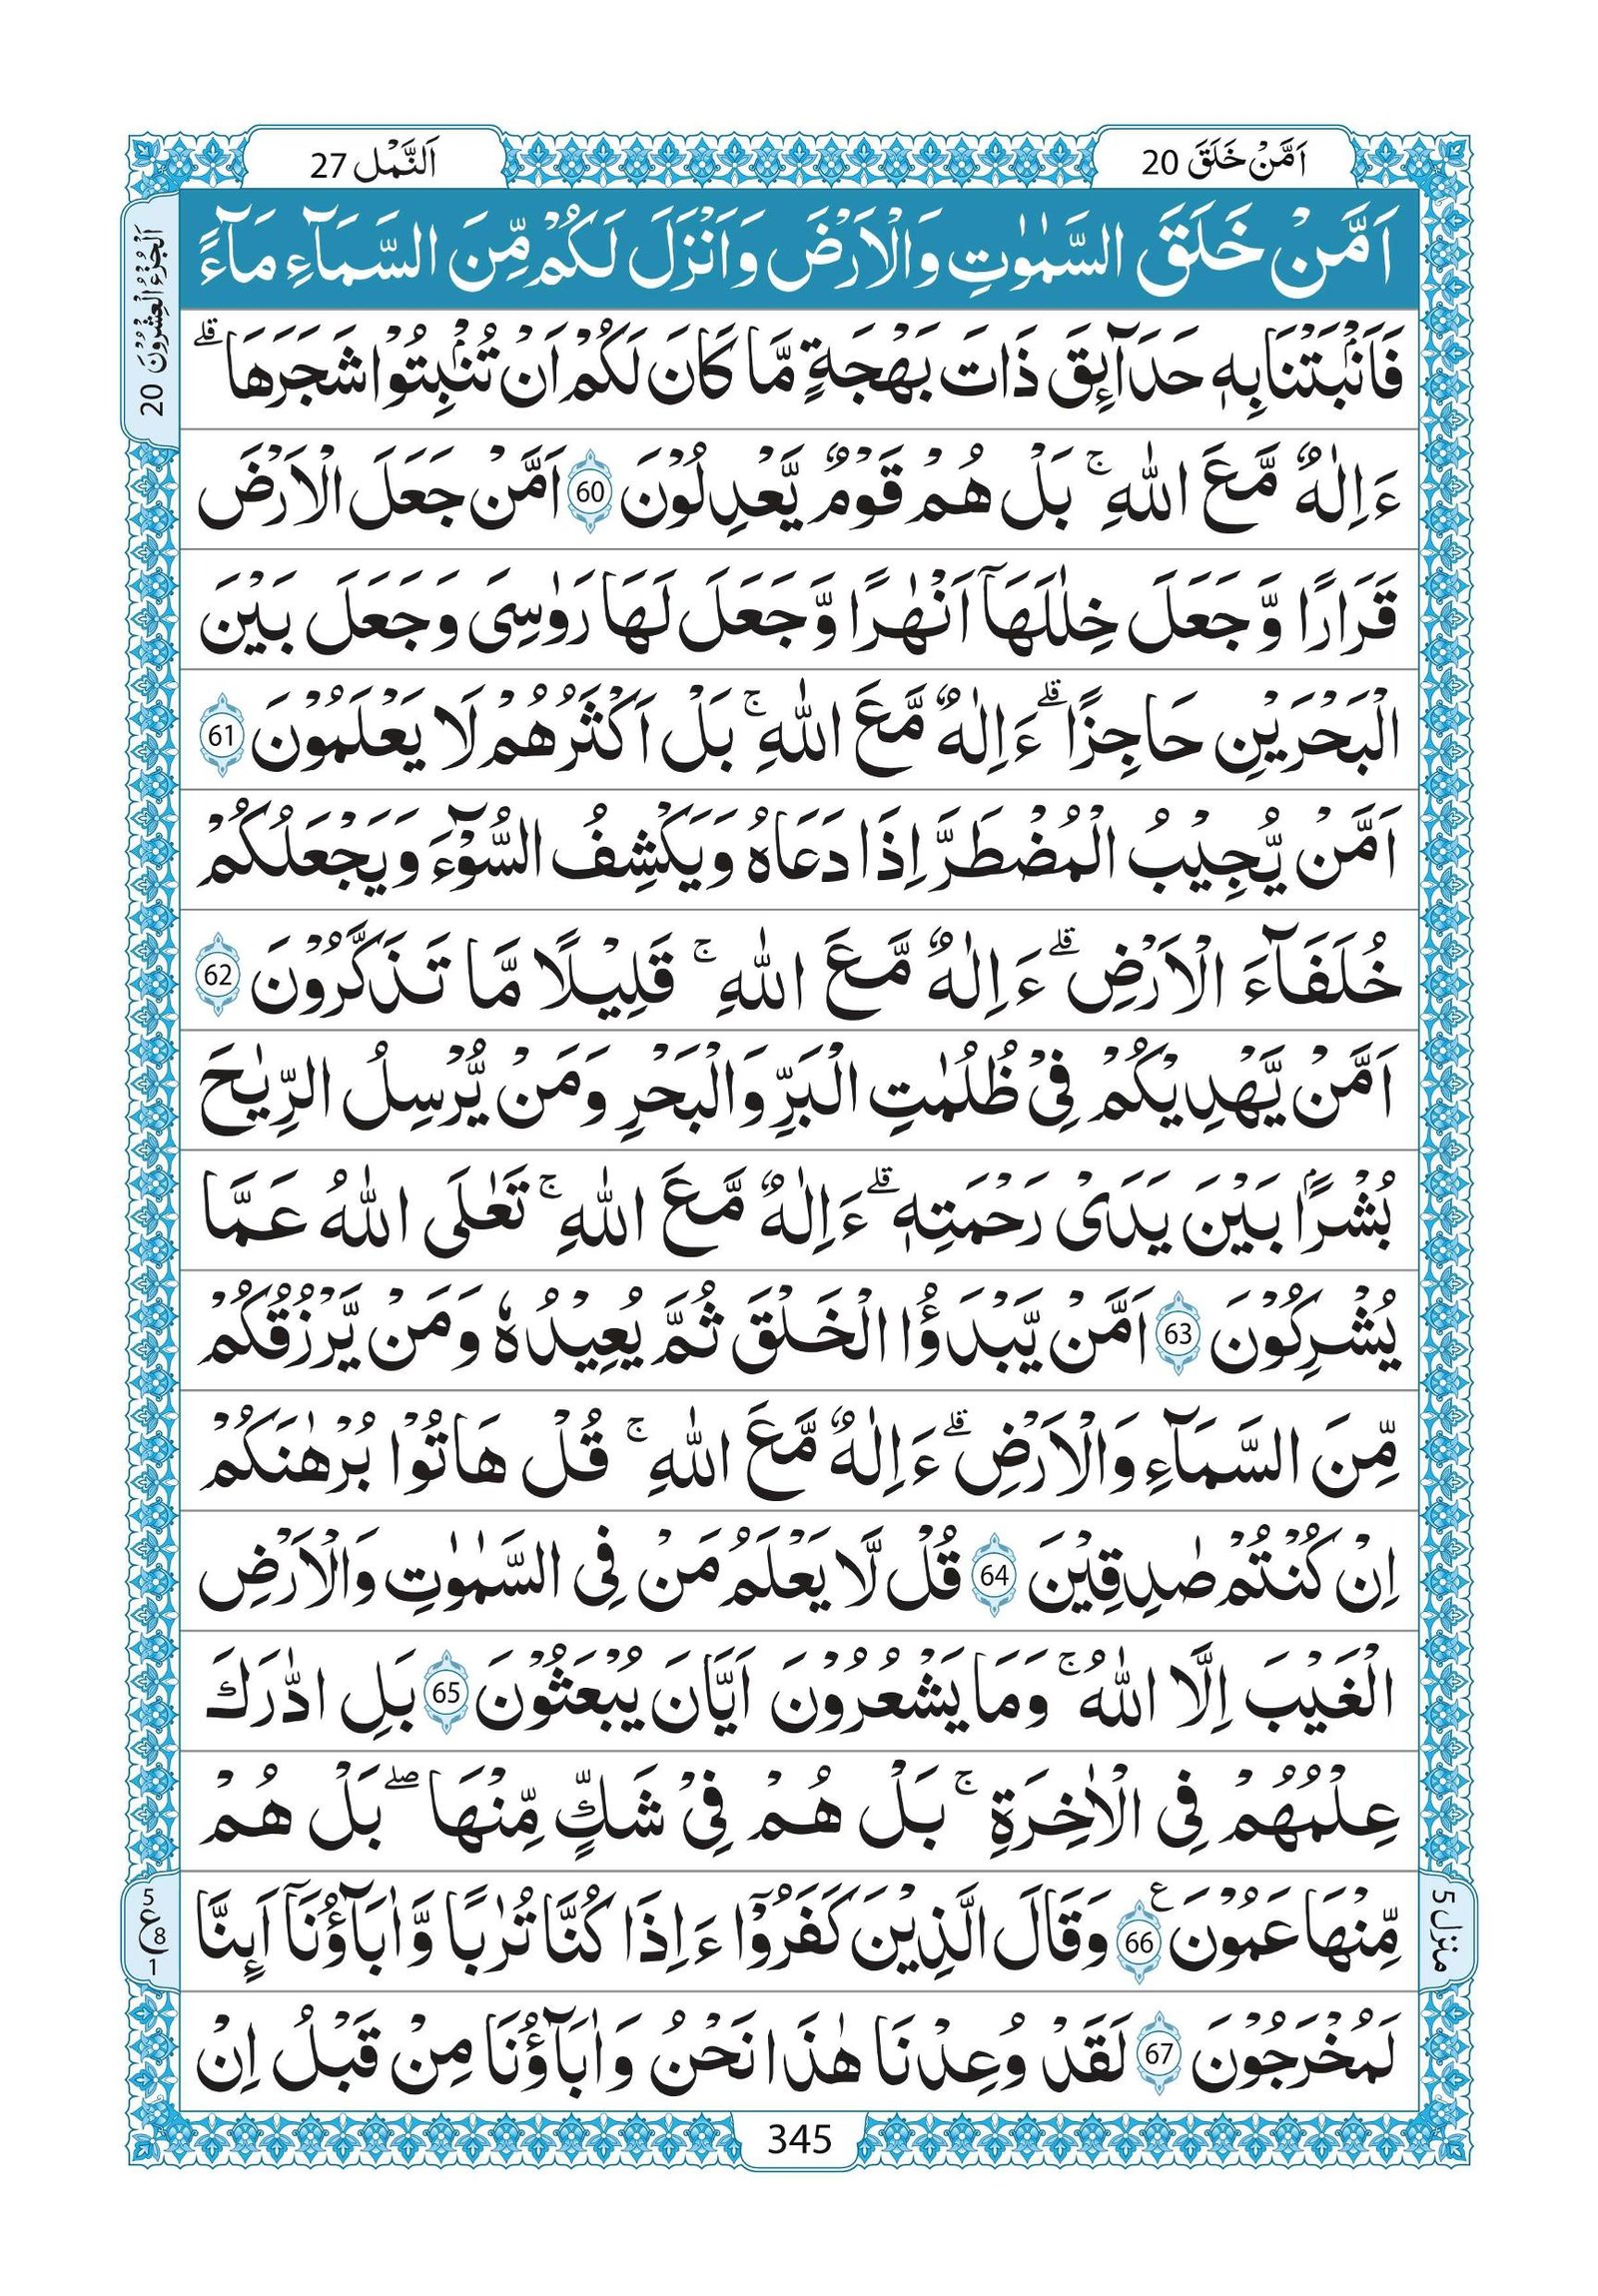 اَمَّنْ خَلَقَ 20
اَلنَّمْل 27
اَلْجُزْءُ الْعِشْرُوْنَ 20
اَمَّنْ خَلَقَ السَّمٰوٰتِ وَالْاَرْضَ وَاَنْزَلَ لَكُمْ مِّنَ السَّمَآءِ مَآءً
فَاَنْۢبَتْنَا بِهٖ حَدَآئِقَ ذَاتَ بَهْجَةٍ مَّا كَانَ لَكُمْ اَنْ تُنْۢبِتُوْا شَجَرَهَا ؕ
ءَاِلٰهٌ مَّعَ اللّٰهِ ۚ بَلْ هُمْ قَوْمٌ يَّعْدِلُوْنَ 60 اَمَّنْ جَعَلَ الْاَرْضَ
قَرَارًا وَّجَعَلَ خِلٰلَهَاۤ اَنْهٰرًا وَّجَعَلَ لَهَا رَوٰسِىَ وَجَعَلَ بَيْنَ
الْبَحْرَيْنِ حَاجِزًا ۗ ءَاِلٰهٌ مَّعَ اللّٰهِ ۚ بَلْ اَكْثَرُهُمْ لَا يَعْلَمُوْنَ 61
اَمَّنْ يُّجِيْبُ الْمُضْطَرَّ اِذَا دَعَاهُ وَيَكْشِفُ السُّوْٓءَ وَيَجْعَلُكُمْ
خُلَفَآءَ الْاَرْضِ ۗ ءَاِلٰهٌ مَّعَ اللّٰهِ ۚ قَلِيْلًا مَّا تَذَكَّرُوْنَ 62
اَمَّنْ يَّهْدِيْكُمْ فِىْ ظُلُمٰتِ الْبَرِّ وَالْبَحْرِ وَمَنْ يُّرْسِلُ الرِّيٰحَ
بُشْرًۢا بَيْنَ يَدَىْ رَحْمَتِهٖ ۗ ءَاِلٰهٌ مَّعَ اللّٰهِ ۚ تَعٰلَى اللّٰهُ عَمَّا
يُشْرِكُوْنَ 63 اَمَّنْ يَّبْدَؤُا الْخَلْقَ ثُمَّ يُعِيْدُهٗ وَمَنْ يَّرْزُقُكُمْ
مِّنَ السَّمَآءِ وَالْاَرْضِ ۗ ءَاِلٰهٌ مَّعَ اللّٰهِ ۚ قُلْ هَاتُوْا بُرْهٰنَكُمْ
اِنْ كُنْتُمْ صٰدِقِيْنَ 64 قُلْ لَّا يَعْلَمُ مَنْ فِى السَّمٰوٰتِ وَالْاَرْضِ
الْغَيْبَ اِلَّا اللّٰهُ ۚ وَمَا يَشْعُرُوْنَ اَيَّانَ يُبْعَثُوْنَ 65 بَلِ ادّٰرَكَ
عِلْمُهُمْ فِى الْاٰخِرَةِ ۚ بَلْ هُمْ فِىْ شَكٍّ مِّنْهَا ۖ بَلْ هُمْ
مِّنْهَا عَمُوْنَ ع 66 وَقَالَ الَّذِيْنَ كَفَرُوْۤا ءَاِذَا كُنَّا تُرٰبًا وَّاٰبَآؤُنَاۤ اَئِنَّا
5 ع 8 1
منزل 5
لَمُخْرَجُوْنَ 67 لَقَدْ وُعِدْنَا هٰذَا نَحْنُ وَاٰبَآؤُنَا مِنْ قَبْلُ اِنْ
345